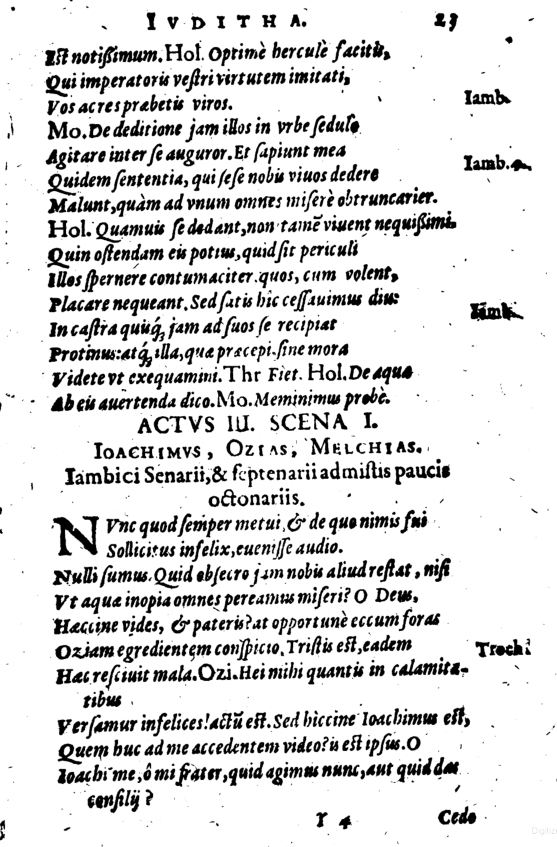 IVDITHA. 23
Est notißimum. Hol. Optimè herculè facitis,
Qui imperatoris vestri virtutem imitati,
Vos acres præbetis viros. Iamb.
Mo. De deditione jam illos in vrbe sedulo
Agitare inter se auguror. Et sapiunt mea Iamb. 4.
Quidem sententia, qui sese nobis viuos dedere
Malunt, quàm ad vnum omnes miserè obtruncarier.
Hol. Quamuis se dedant, non tamē viuent nequißimi.
Quin ostendam eis potius, quid sit periculi
Illos spernere contumaciter. quos, cum volent,
Placare nequeant. Sed satis hic cessauimus diu: Iamb.
In castra quisq́, jam ad suos se recipiat
Protinus: atq́, illa, quæ præcepi. sine mora
Videte vt exequamini. Thr Fiet. Hol. De aqua
Ab eis auertenda dico. Mo. Meminimus probè.
ACTVS III. SCENA I.
IOACHIMVS, OZIAS, MELCHIAS.
Iambici Senarii, & septenarii admistis paucis
octonariis.
NVnc quod semper metui, & de quo nimis fui
Sollicitus infelix, euenisse audio.
Nulli sumus. Quid obsecro jam nobis aliud restat, nisi
Vt aquæ inopia omnes pereamus miseri? O Deus,
Hæccine vides, & pateris? at opportunè eccum foras
Oziam egredientem conspicio. Tristis est, eadem Troch:
Hæc resciuit mala. Ozi. Hei mihi quantis in calamita-
tibus
Versamur infelices! actū est. Sed hiccine Ioachimus est,
Quem huc ad me accedentem video? is est ipsus. O
Ioachime, ô mi frater, quid agimus nunc, aut quid das
consilij?
Y 4 Cedo
Digitiz